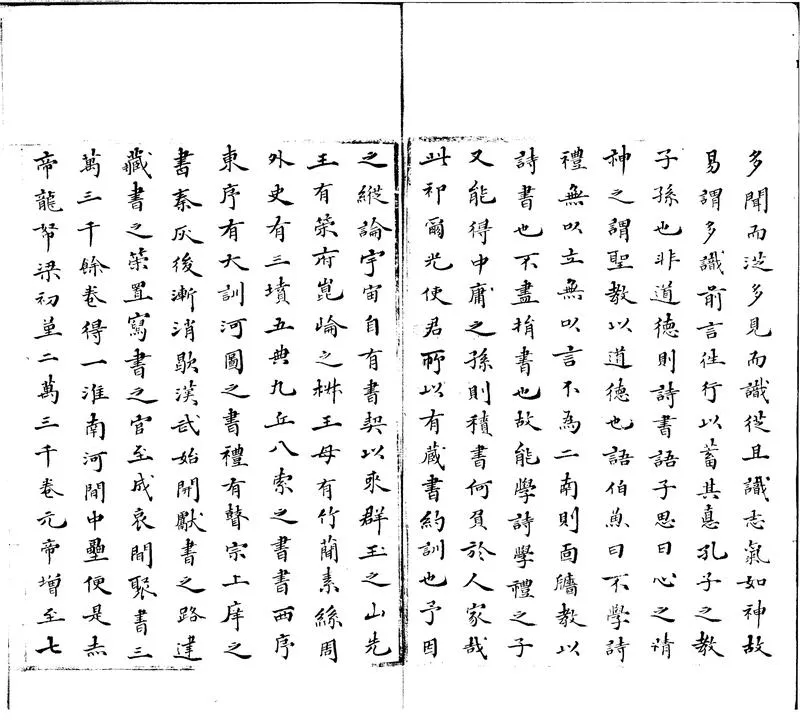 多聞而從多見而識從且識志氣如神故
易謂多識前言往行以蓄其悳孔子之教
子孫也非道德則詩書語子思曰心之精
神之謂聖教以道德也語伯魚曰不學詩
禮無以立無以言不為二南則面牆教以
詩書也不盡捐書也故能學詩學禮之子
又能得中庸之孫則積書何負於人家哉
此祁爾光使君所以有藏書約訓也予因
之縱論宇宙自有書契以來群玉之山先
王有策府崑崙之椕王母有竹蕳素絲周
外史有三墳五典九丘八索之書書西序
東序有大訓河圖之書禮有瞽宗上庠之
書秦灰後漸消歇漢武始開獻書之路建
藏書之策置寫書之官至成哀間聚書三
萬三千餘卷得一淮南河間中壘便是赤
帝龍帑梁初並二萬三千卷元帝增至七